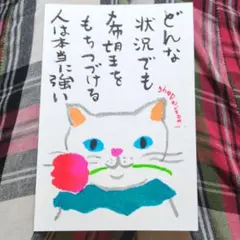 どんな
状況でも
希望を
もちつづける
人は本当に強い